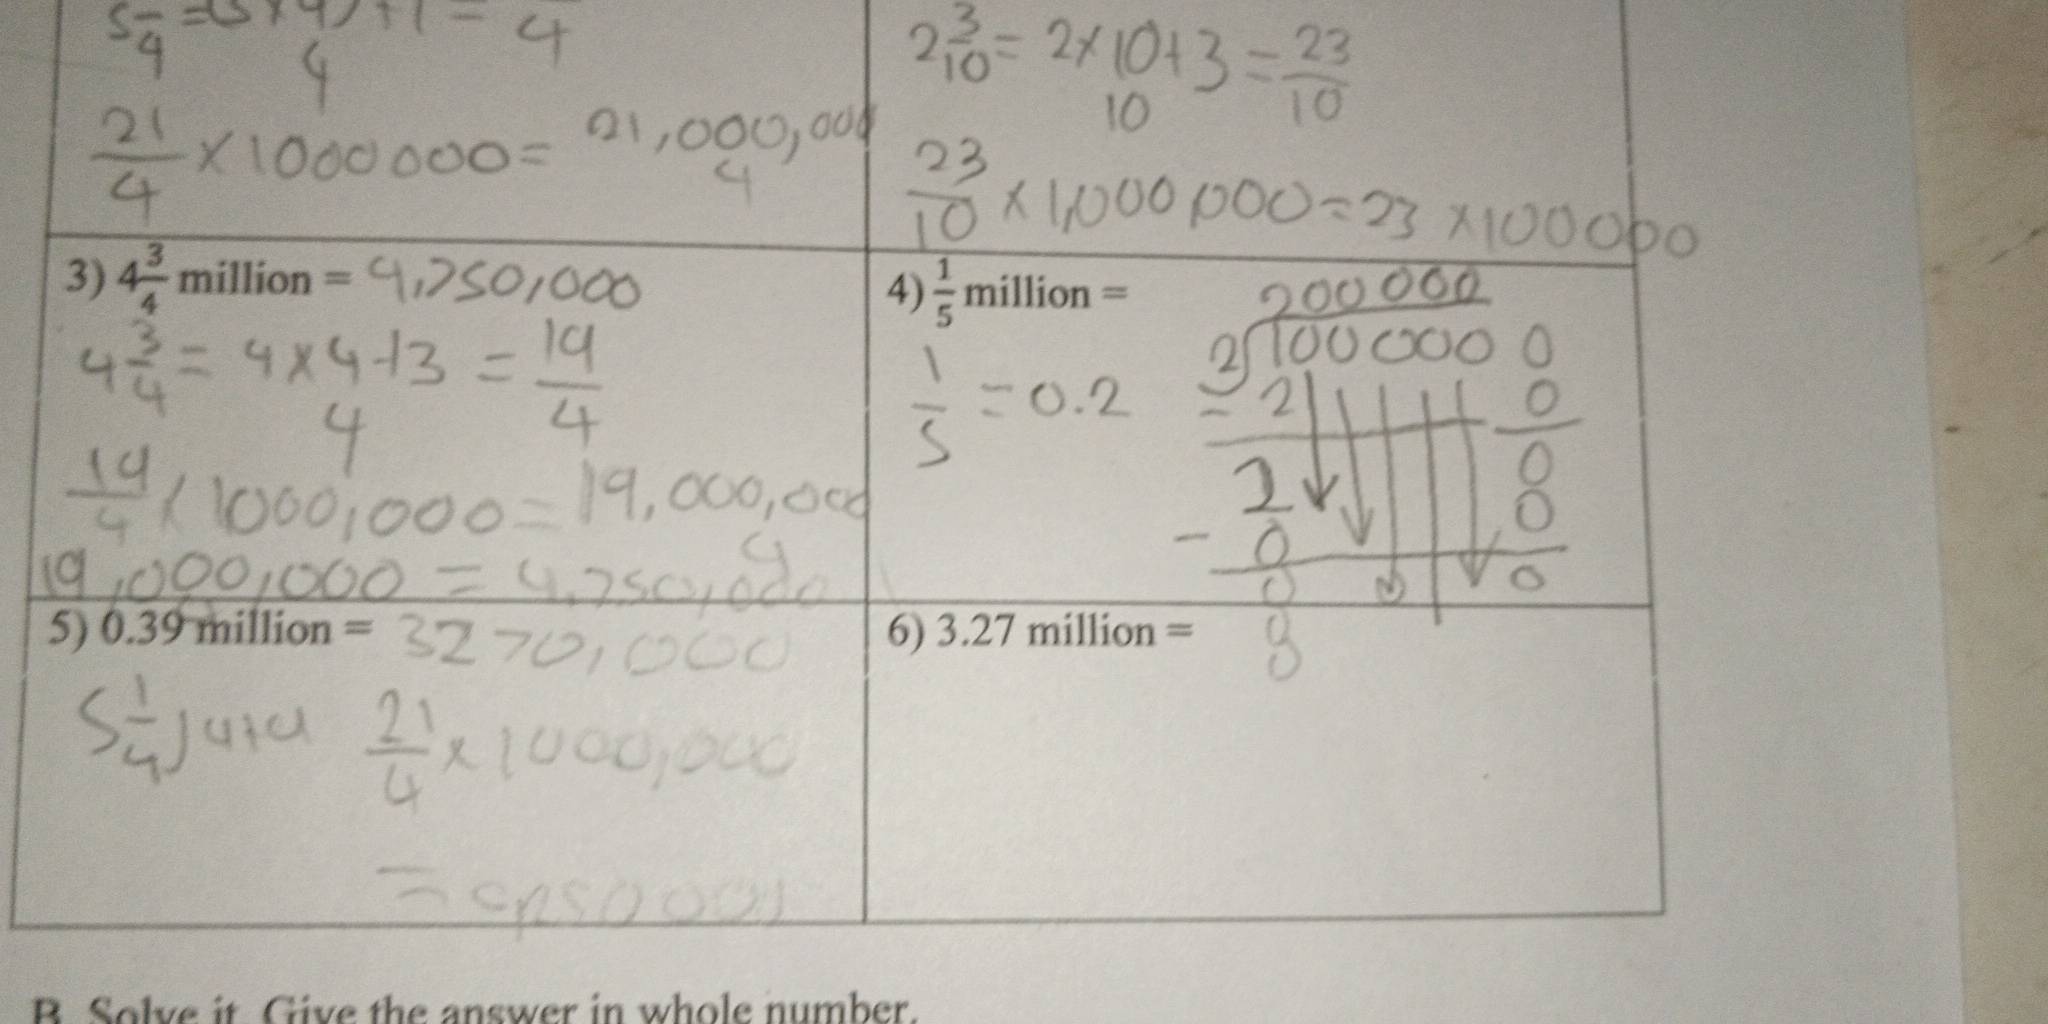 21/4 × 1000 000 = 21,000,000
4
2 3/10 = 2 × 10 + 3 = 23/10
10
23/10 × 1,000,000 = 23 × 100000
3) 4 3/4 million = 4,750,000
4 3/4 = 4 × 4 + 3 = 19/4
4
19/4 × 1000,000 = 19,000,000
4
19,000,000 = 4,750,000
4) 1/5 million =
200 000
1/5 = 0.2
5) 0.39 million = 3270,000
5 1/4
21/4 × 1000,000
=
6) 3.27 million =
B. Solve it. Give the answer in whole number.